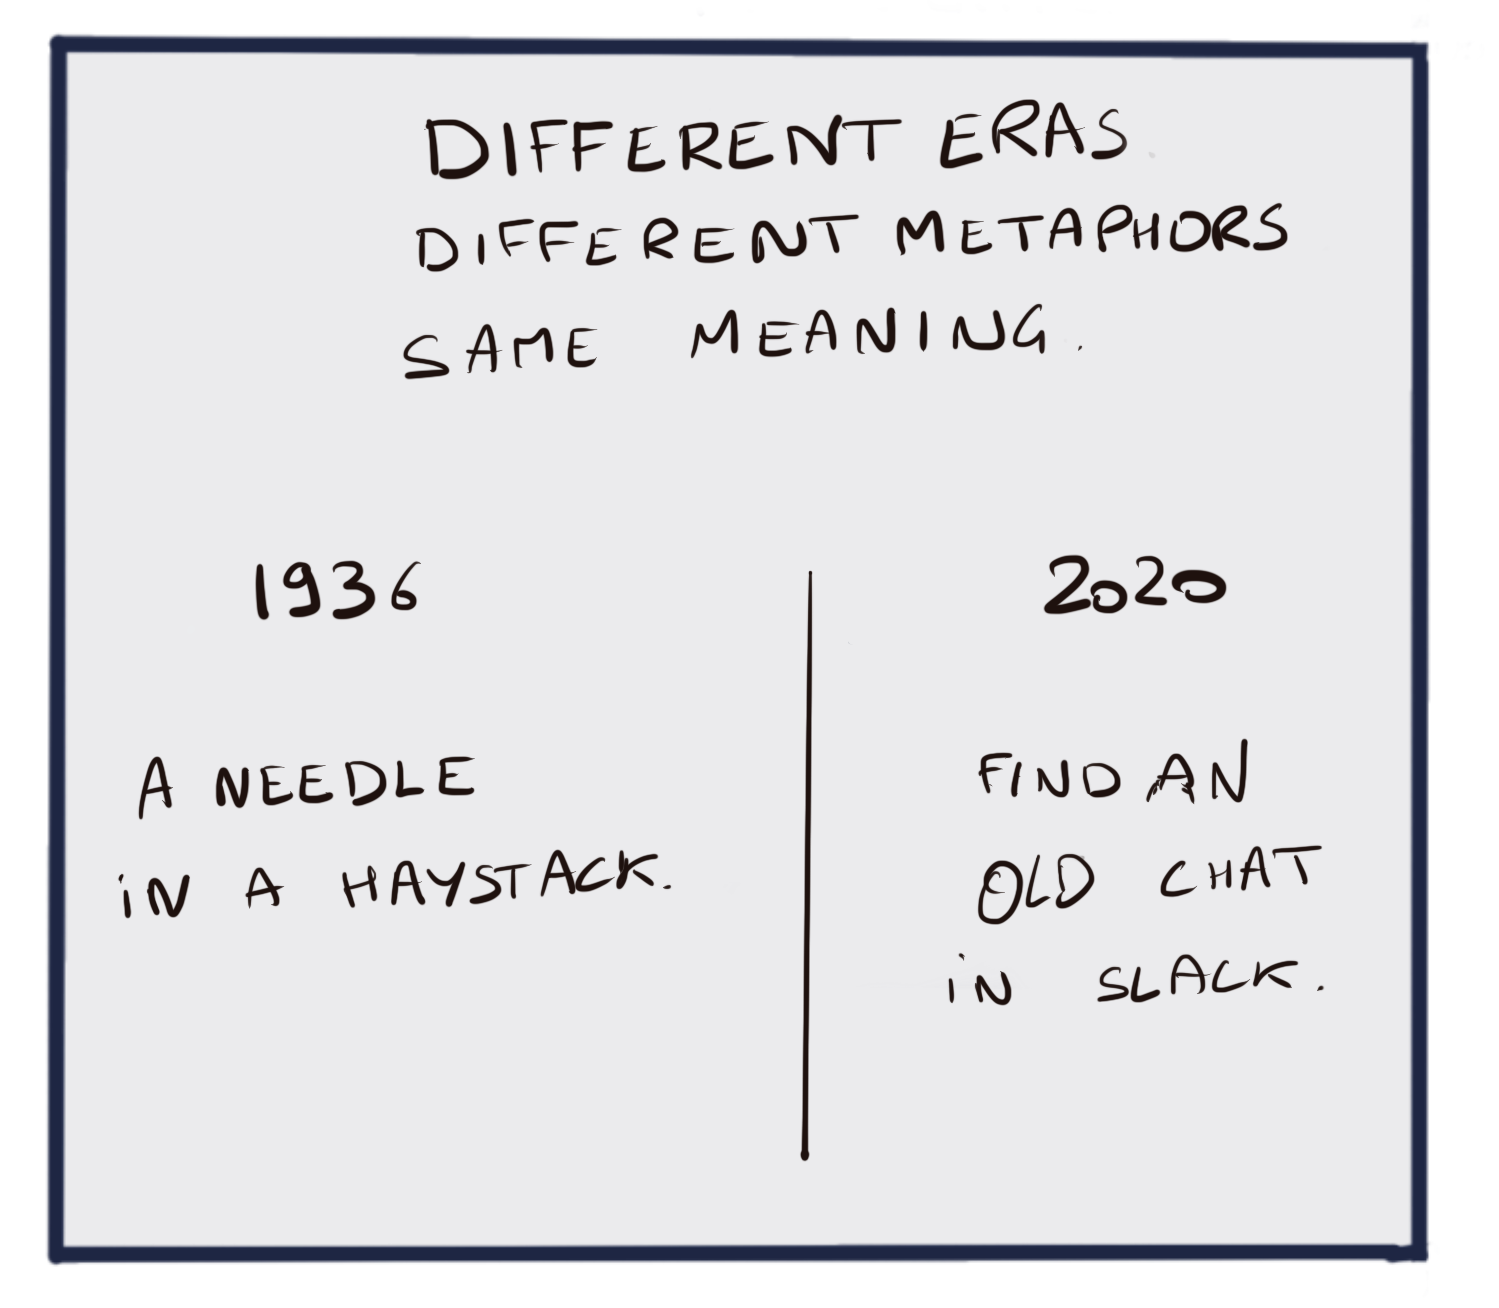 DIFFERENT ERAS
DIFFERENT METAPHORS
SAME MEANING.
1936
A NEEDLE
iN A HAYSTACK.
2020
FIND AN
OLD CHAT
iN SLACK.